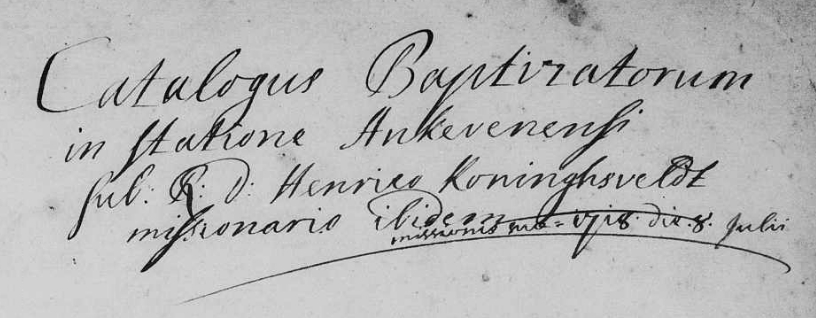 Catalogus Baptizatorum
in statione Ankevenensi
sub: R: D: Henrico Koninghsveldt
missionario ibidem
missionis 1718. die. 8. Julii